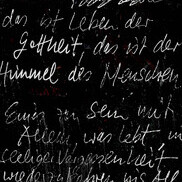 das ist Leben der
Gottheit, das ist der
Himmel des Menschen
Eines zu sein mit
Allem, was lebt, in
seeliger Vergessenheit
wiederzukehren ins All